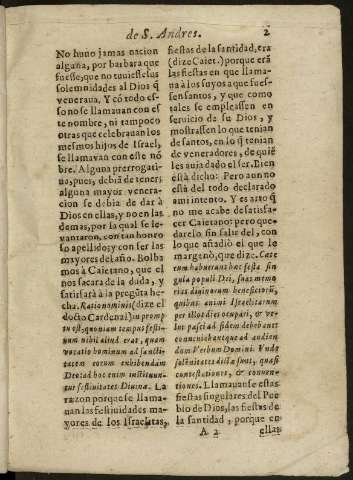 de S. Andres. 2
No huuo jamas nacion
alguna, por barbara que
fuesse, que no tuuiesse sus
solemnidades al Dios q̃
veneraua. Y cõ todo es-
so no se llamauan con es
te nombre, ni tampoco
otras que celebrauan los
mesmos hijos de Israel,
se llamavan con este nõ-
bre. Alguna prerrogati-
ua, pues, debiã de tener;
alguna mayor venera-
cion se debia de dar à
Dios en ellas, y no en las
demas, por la qual se le-
vantaron, con tan honro
so apellido; y con ser las
mayores del año. Bolba
mos à Caietano, que el
nos sacara de la duda, y
satisfarà à la pregũta he
cha. Ratio nominis (dize el
docto Cardenal) in promp
tu est, quoniam tempus festiui-
tatum nihil aliud erat, quam
vocatio hominum ad sancti-
tatem eorum exhibendam
Deo: ad hoc enim instituun-
tur festiuitates Diuinæ. La
razon porque se llama-
uan las festiuidades ma-
yores de los Israelitas,
fiestas de la santidad, era
(dize Caiet.) porque erã
las fiestas en que llama-
ua à los suyos a que fues-
sen santos, y que como
tales se empleassen en
servicio de su Dios, y
mostrassen lo que tenian
de santos, en lo q̃ tenian
de veneradores, de quiẽ
les auia dado el ser. Bien
està dicho: Pero aun no
està del todo declarado
ami intento. Y es assi q̃
no me acabe de satisfa-
cer Caietano: pero que-
darelo sin salir del, con
lo que añadiò el que le
margenò, que dize. Cate
rum habuerunt hac festa sin
gula populi Dei, suas memo
rias diuinorum beneficiorũ,
quibus animi Israelitarum
per illos dies occupari, & ve-
lut pasci ad fidem debebant
conueniebantque ad audien
dum Verbum Domini. Unde
solemnitates dictæ sunt, quasi
contestationes, & conuen-
tiones. Llamauanse estas
fiestas singulares del Pue
blo de Dios, las fiestas de
la santidad, porque en
A 2 ellas